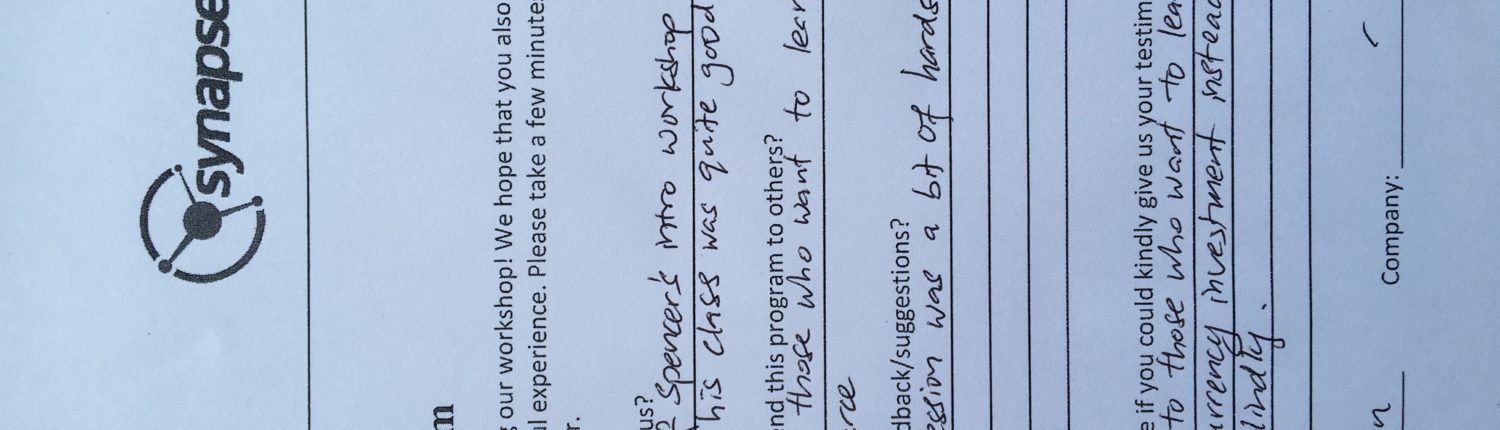 synapse
m
our workshop! We hope that you also
experience. Please take a few minute
r.
us?
Spencer's intro workshop
his class was quite good
this program to others?
those who want to
suggestions?
was a bit of
if you could kindly give us your
to those who want to
investment
Company: